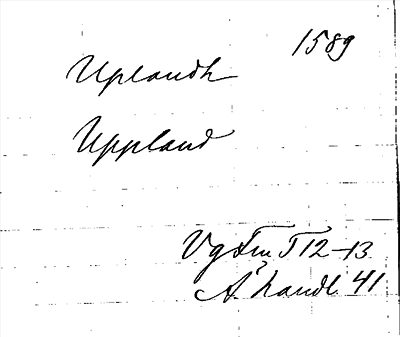 1589
Uplandh
Uppland
Vg Fm T 12-13
Å. handl. 41